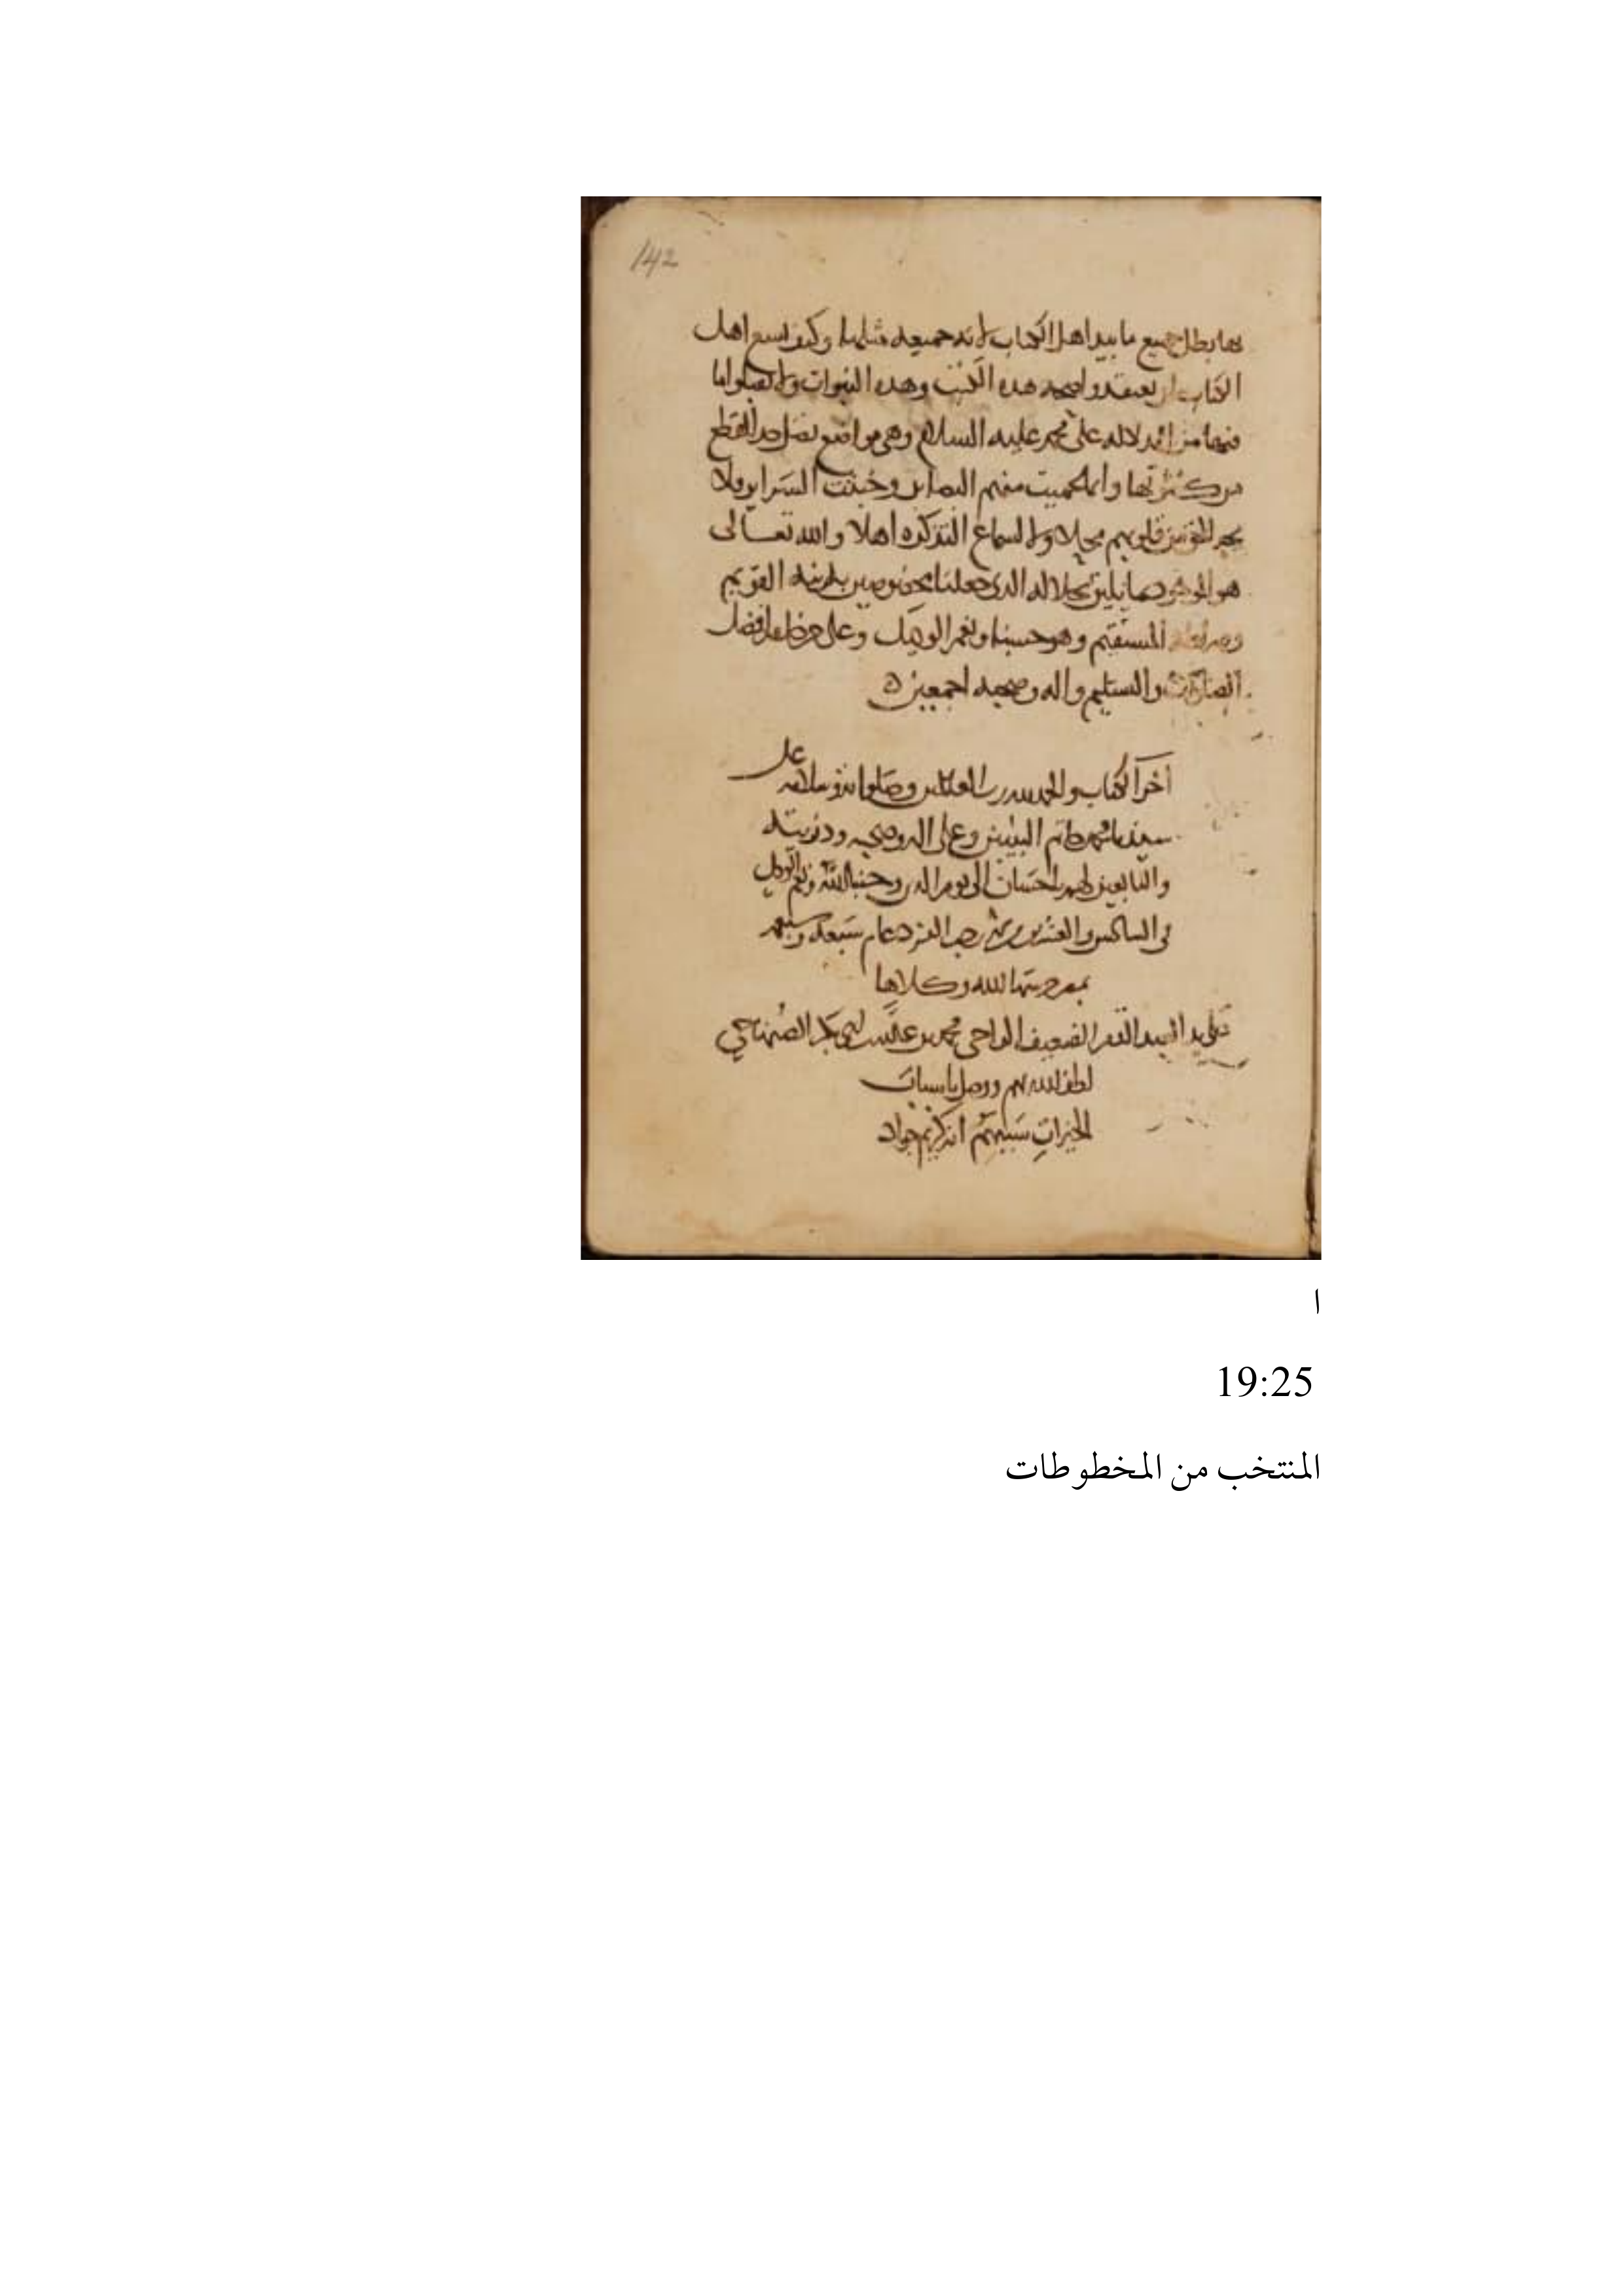 142
بها بطل جميع ما بيد اهل الكتاب لانه جميعه مثلها وكيف يسع اهل
الكتاب ان يعتقدوا صحه هده الكتب وهده النبوات ولا يقبلوا ما
فيها من الدلاله على محمد عليه السلام وهى مواضع تصل حد القطع
من كثرتها وانما عميت منهم البصاير وخبثت السراير فلا
يجد الحق من قلوبهم محلا ولا لسماع التذكره اهلا والله تعالى
هو المحمود بما يليق بجلاله الدى جعلنا مخصوصين بدينه القويم
وصراطه المستقيم وهو حسبنا ونعم الوكيل وعلى افضل
الصلاة والتسليم واله وصحبه اجمعين
اخر الكتاب والحمد لله رب العالمين وصلواته وسلامه على
سيدنا محمد خاتم النبيين وعلى اله وصحبه وذريته
والتابعين لهم باحسان الى يوم الدين وحسبنا الله ونعم الوكيل
فى السادس والعشرين من شهر رجب الفرد عام سبعه وسبعمه
بمصر حرسها الله وكلاها
على يد العبد الفقير الضعيف الراجى محمد بن ابى بكر الصنهاجي
لطف الله بهم ووصل باسباب
الخيرات سببهم انه كريم جواد
ا
19:25
المنتخب من المخطوطات